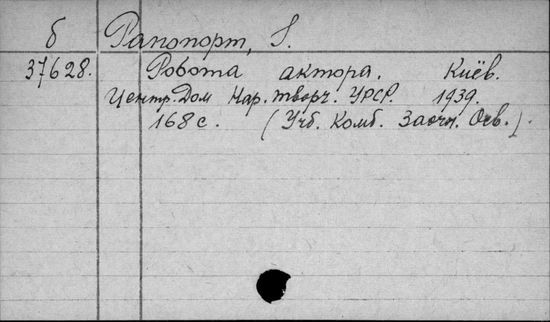 б Рапопорт, І.
37628. Робота актора. Киёв.
Центр. Дом Нар. творч. УРСР. 1939.
168 с. (Учб. Комб. Заочн. Осв.).